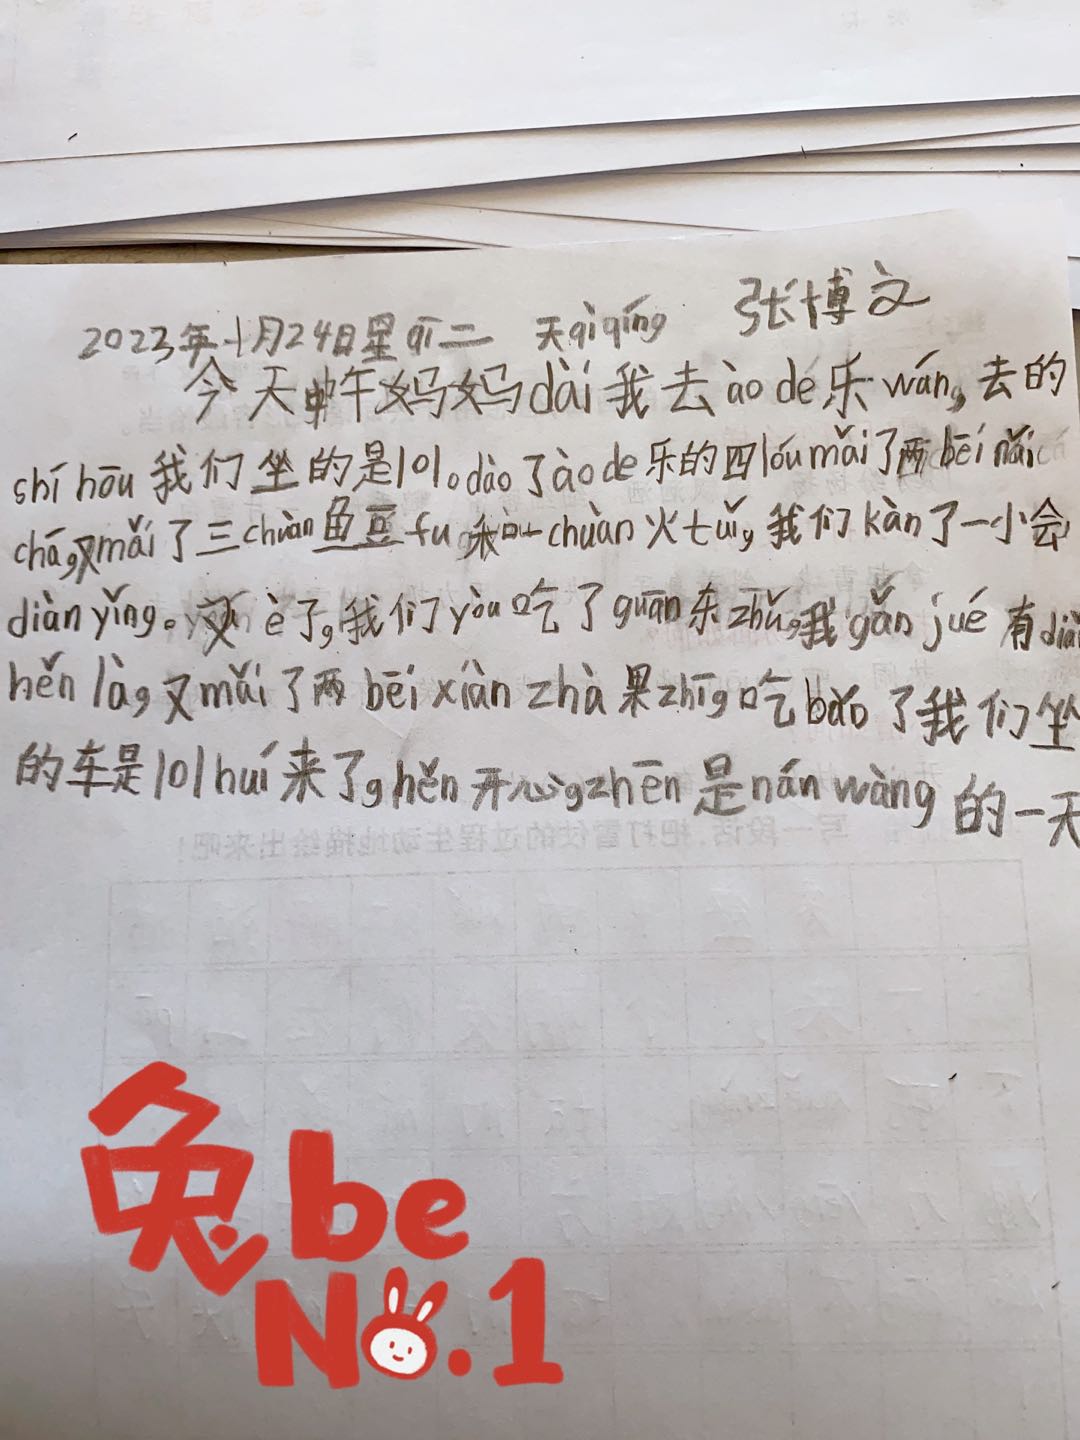 2023年1月24日星qī二 天qìqíng 张博文
今天中午妈妈dài我去àodé乐wáng,去的
shíhōu我们坐的是101。dào了àode乐的四lóumǎi了两bēinǎi
chá,又mǎi了三chuàn鱼豆fu,和一chuàn火tuǐ,我们kàn了一小会
diànyǐng。又è了,我们yòu吃了guān东zhǔ,我gǎnjué有diǎn
hěnlà,又mǎi了两bēixiànzhà果zhī,吃bǎo了我们坐
的车是101huí来了,hěn开心,zhēn是nánwàng的一天
写一段话,把打雪仗的过程生动地描绘出来吧!
兔be
NO.1